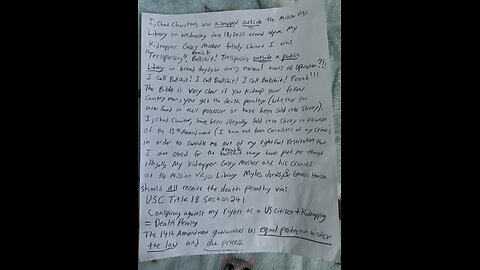 I, Chad Chavittos, was kidnapped outside the Mission Viejo
Library on Wednesday June 18, 2025 around 4pm. My
Kidnapper Casey Mosher falsely claimed I was
"Trespassing". Bullshit! Trespassing outside a public
library in broad daylight during normal hours of operation?!!
I call Bullshit! I call Bullshit! I call Bullshit! Fraud!!!
The Bible is very clear if you kidnap your fellow
country man, you get the death penalty (whether you
are found in their possession or have been sold into slavery).
I, Chad Chavittos, have been illegally sold into slavery in violation
of the 13th Amendment (I have not been convicted of any crime)
in order to swindle me out of my rightful restitution that
I am owed for the they have put me through
illegally. My kidnapper Casey Mosher and his cronies
at the Mission Viejo Library Myles & Genesis Hansen
should all receive the death penalty via:
USC Title 18 Section 241
Conspiracy against my rights as a US Citizen + Kidnapping
= Death Penalty
The 14th Amendment guarantees us equal protection under
the law and due process.